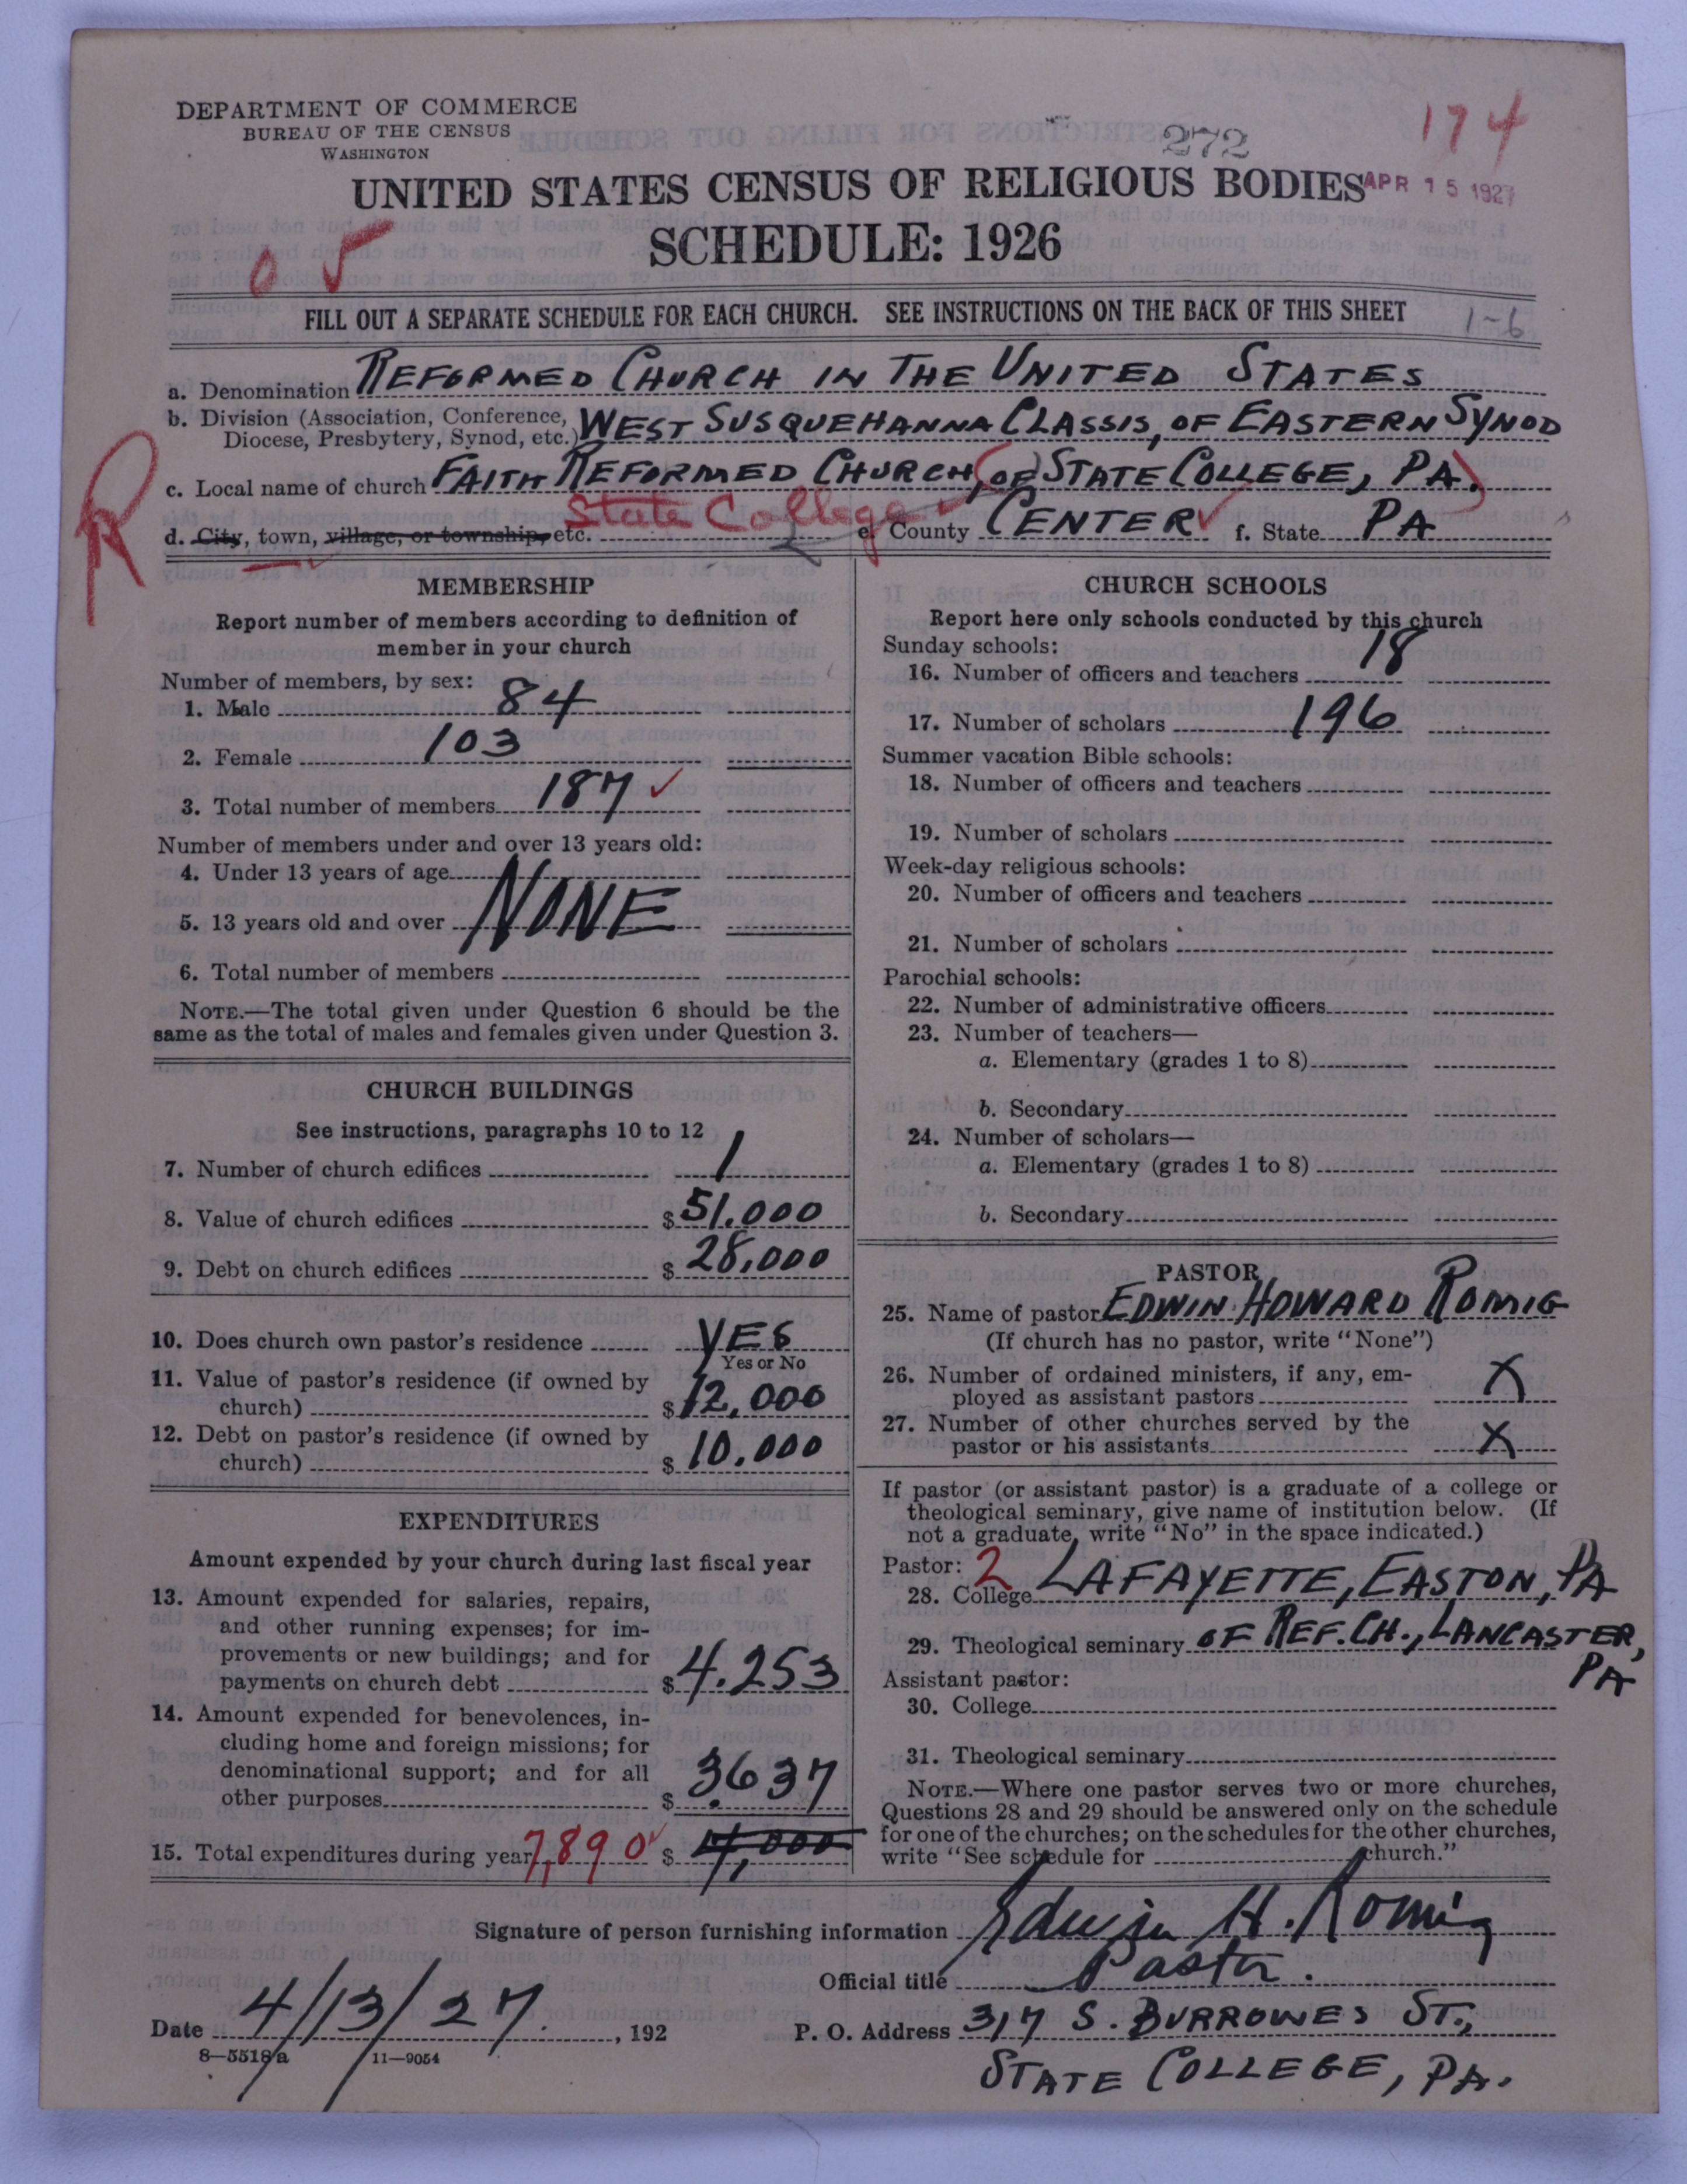 DEPARTMENT OF COMMERCE
BUREAU OF THE CENSUS
WASHINGTON
272
174
UNITED STATES CENSUS OF RELIGIOUS BODIES
APR 15 1927
SCHEDULE: 1926
FILL OUT A SEPARATE SCHEDULE FOR EACH CHURCH. SEE INSTRUCTIONS ON THE BACK OF THIS SHEET
1-6
a. Denomination REFORMED CHURCH IN THE UNITED STATES
b. Division (Association, Conference, Diocese, Presbytery, Synod, etc.) WEST SUSQUEHANNA CLASSIS, OF EASTERN SYNOD
R
c. Local name of church FAITH REFORMED CHURCH, (OF STATE COLLEGE, PA.)
d. City, town, village, or township, etc. State College e. County CENTER f. State PA
MEMBERSHIP
Report number of members according to definition of
member in your church
Number of members, by sex:
1. Male 84
2. Female 103
3. Total number of members 187
Number of members under and over 13 years old:
4. Under 13 years of age
5. 13 years old and over NONE
6. Total number of members
NOTE.—The total given under Question 6 should be the
same as the total of males and females given under Question 3.
CHURCH BUILDINGS
See instructions, paragraphs 10 to 12
7. Number of church edifices 1
8. Value of church edifices $ 51,000
9. Debt on church edifices $ 28,000
10. Does church own pastor's residence YES
Yes or No
11. Value of pastor's residence (if owned by
church) $ 12,000
12. Debt on pastor's residence (if owned by
church) $ 10,000
EXPENDITURES
Amount expended by your church during last fiscal year
13. Amount expended for salaries, repairs,
and other running expenses; for im-
provements or new buildings; and for
payments on church debt $ 4,253
14. Amount expended for benevolences, in-
cluding home and foreign missions; for
denominational support; and for all
other purposes $ 3637
15. Total expenditures during year 7,890 $ 4,000
CHURCH SCHOOLS
Report here only schools conducted by this church
Sunday schools:
16. Number of officers and teachers 18
17. Number of scholars 196
Summer vacation Bible schools:
18. Number of officers and teachers
19. Number of scholars
Week-day religious schools:
20. Number of officers and teachers
21. Number of scholars
Parochial schools:
22. Number of administrative officers
23. Number of teachers—
a. Elementary (grades 1 to 8)
b. Secondary
24. Number of scholars—
a. Elementary (grades 1 to 8)
b. Secondary
PASTOR
25. Name of pastor EDWIN HOWARD ROMIG
(If church has no pastor, write "None")
26. Number of ordained ministers, if any, em-
ployed as assistant pastors X
27. Number of other churches served by the
pastor or his assistants X
If pastor (or assistant pastor) is a graduate of a college or
theological seminary, give name of institution below. (If
not a graduate, write "No" in the space indicated.)
Pastor: 2
28. College LAFAYETTE, EASTON, PA
29. Theological seminary OF REF. CH., LANCASTER, PA
Assistant pastor:
30. College
31. Theological seminary
NOTE.—Where one pastor serves two or more churches,
Questions 28 and 29 should be answered only on the schedule
for one of the churches; on the schedules for the other churches,
write "See schedule for church."
Signature of person furnishing information Edwin H. Romig
Official title Pastor.
Date 4/13/27, 192
P. O. Address 317 S. BURROWES ST.,
STATE COLLEGE, PA.
8—5518 a 11—9054